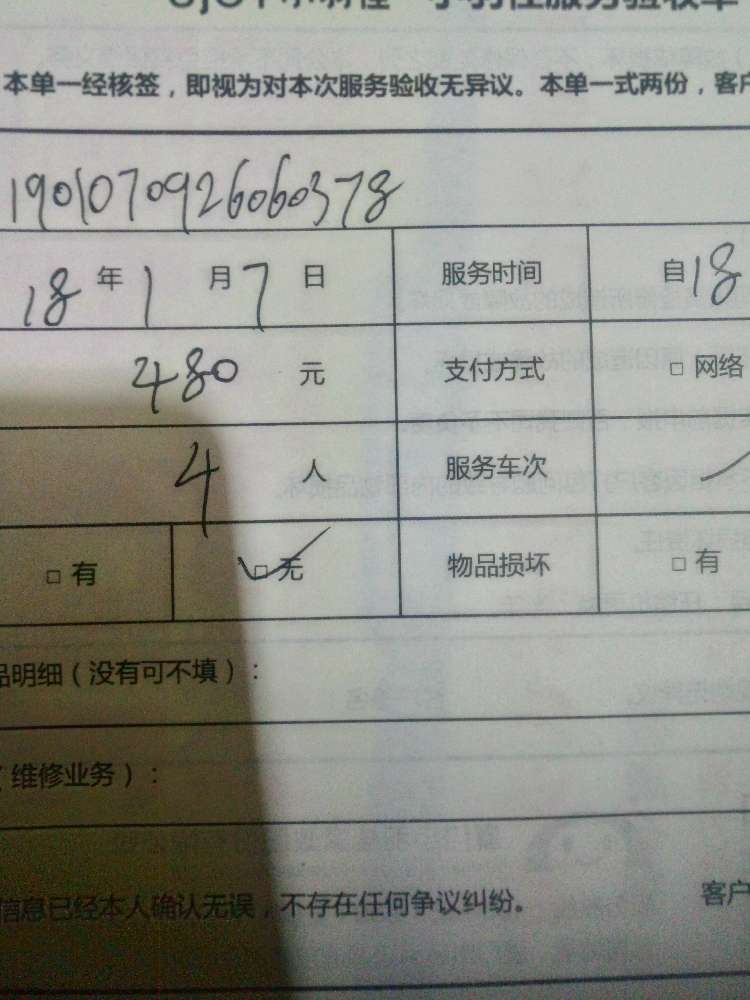 服务验收单
本单一经核签，即视为对本次服务验收无异议。本单一式两份，客户
1901070926060378
18 年 1 月 7 日 服务时间 自 18
480 元 支付方式 □ 网络
4 人 服务车次
□ 有 □ 无 物品损坏 □ 有
品明细（没有可不填）：
（维修业务）：
信息已经本人确认无误，不存在任何争议纠纷。 客户